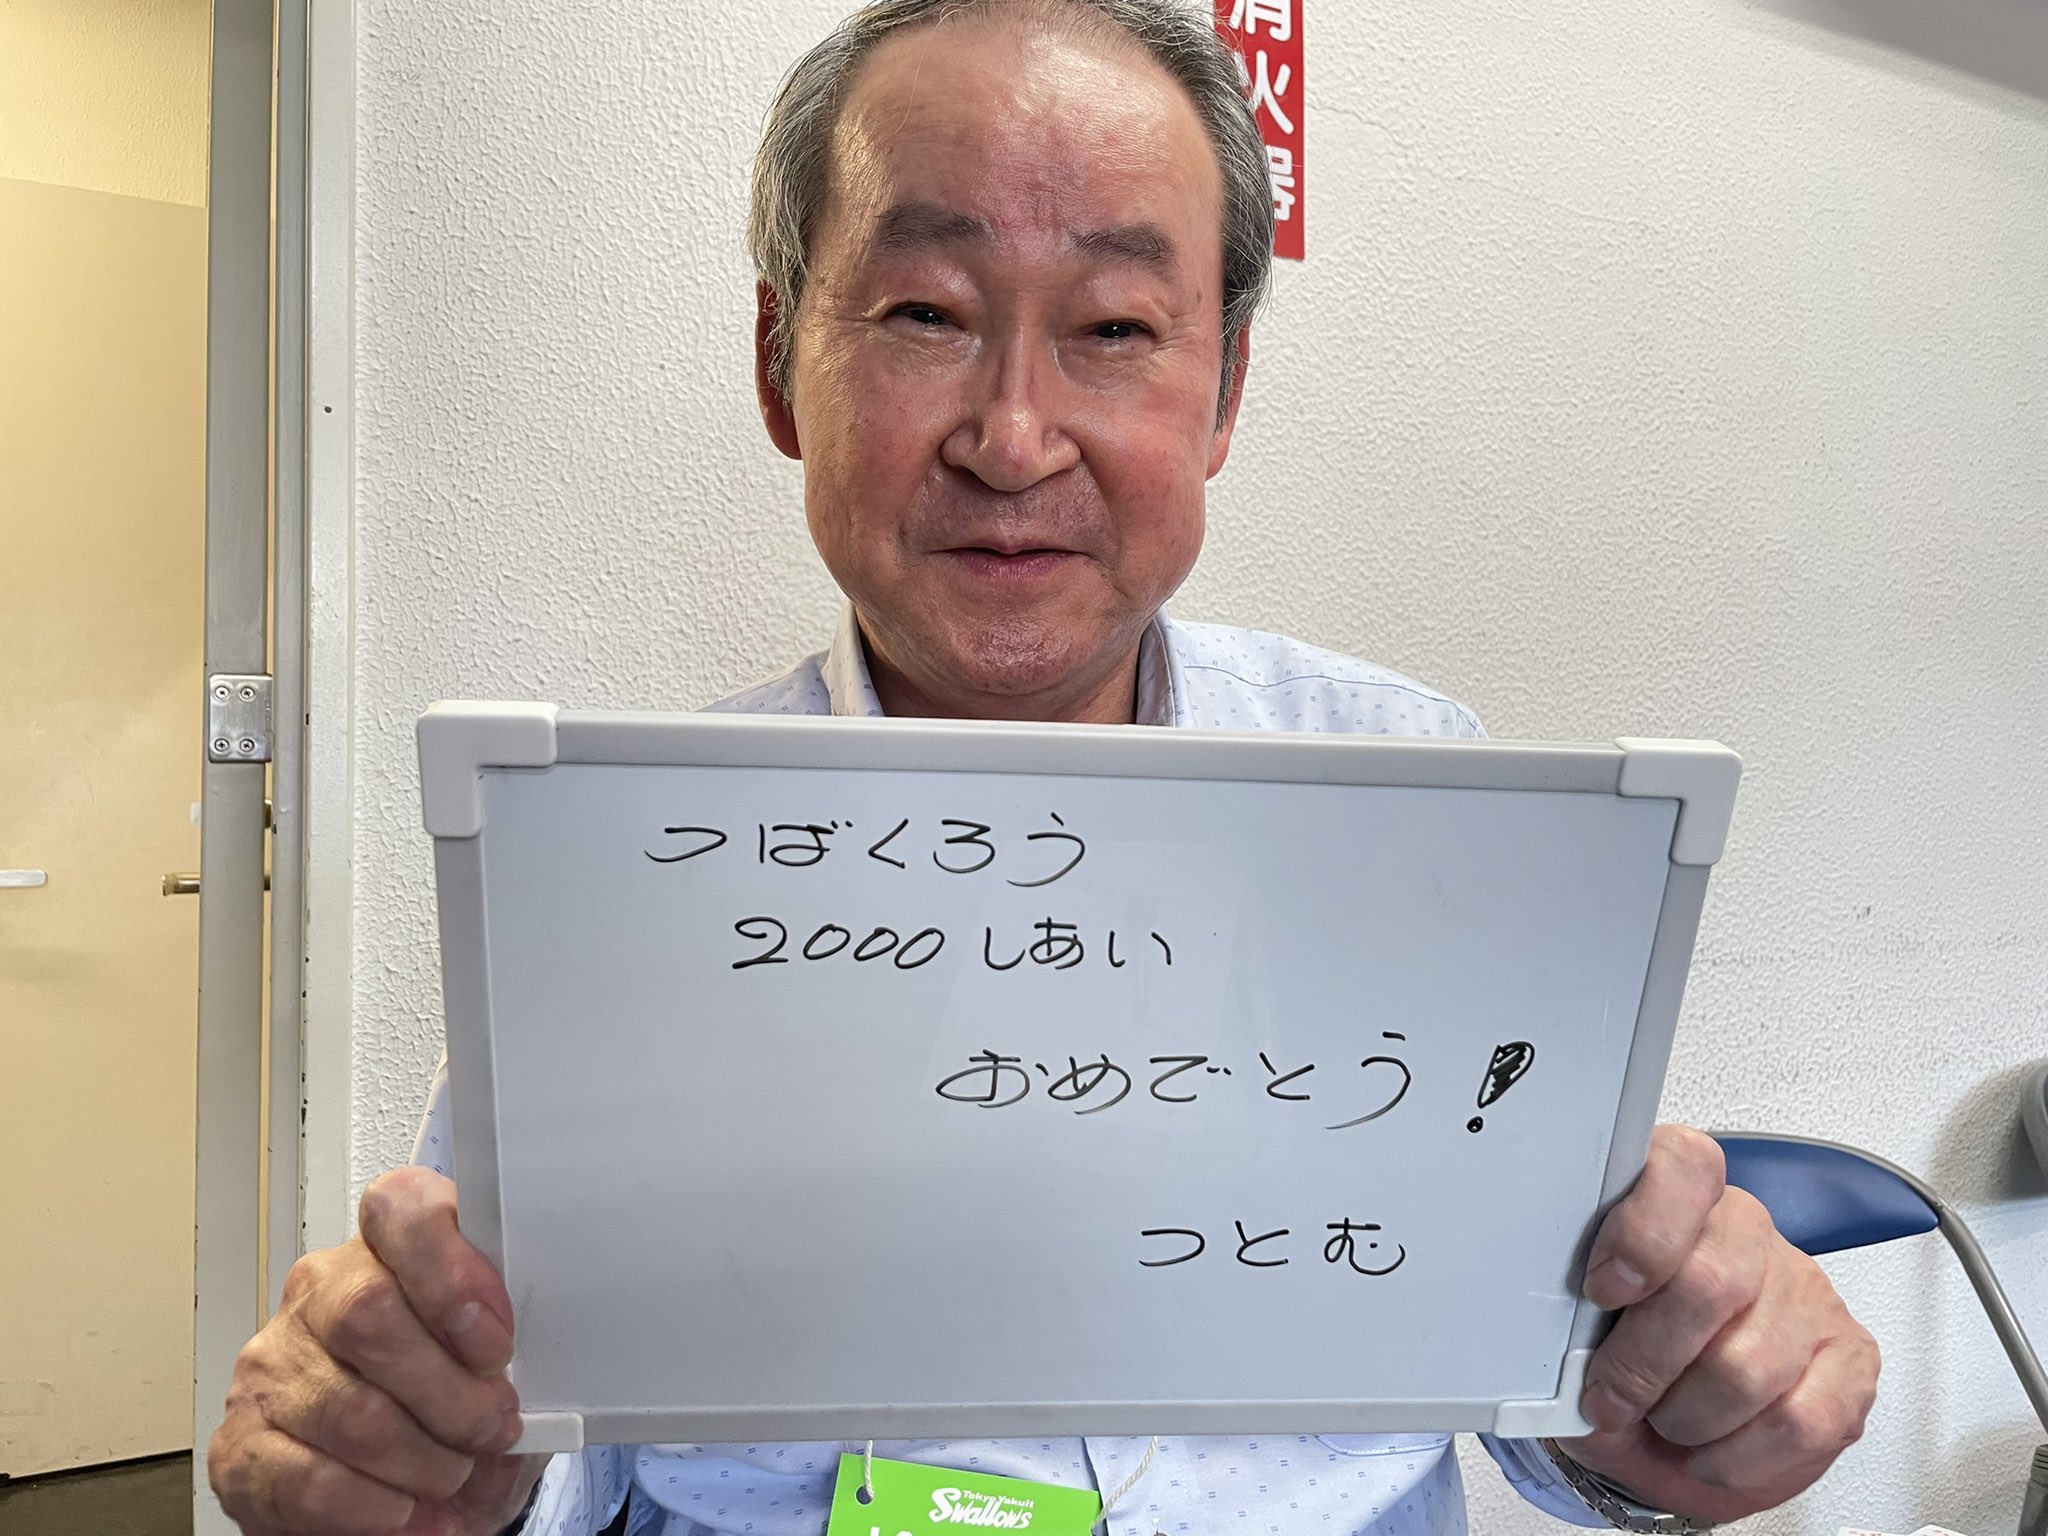 消火器
つばくろう
2000しあい
おめでとう!
つとむ
Tokyo Yakult
Swallows